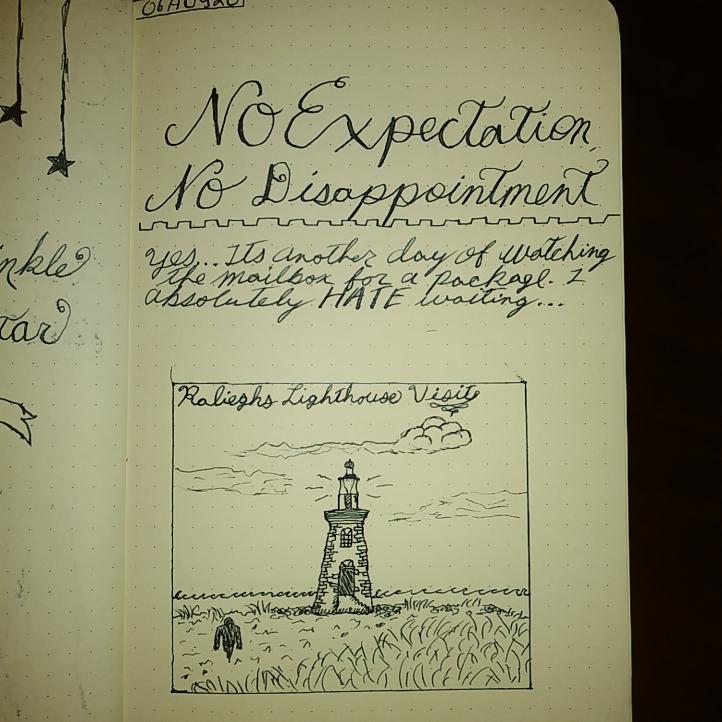 06AUG20
No Expectation,
No Disappointment
Yes... Its another day of watching
the mailbox for a package. I
absolutely HATE waiting...
Ralieghs Lighthouse Visit